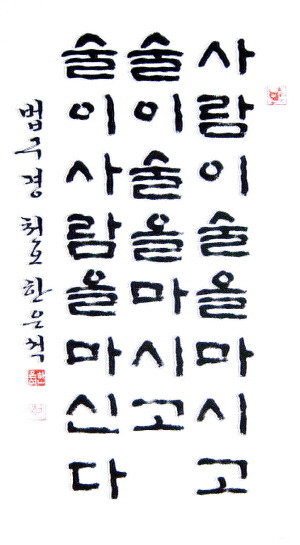 사람이술을마시고
술이술을마시고
술이사람을마신다
법구경